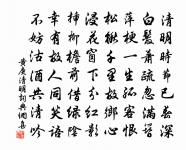 清明時節已春深
白髮蕭疏忽滿簪
萍梗一生孤客恨
松楸千里故鄉心
浸花窗下分紅影
插柳檐前借綠陰
幸有故人同笑語
不妨沽酒共清吟
黃庚清明詞典網